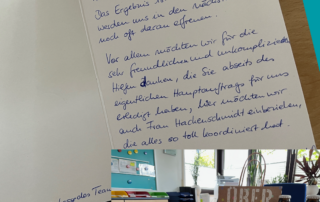 Das Ergebnis is
werden uns in den nächst
noch oft daran erfreuen.
Vor allem möchten wir für die
sehr freundlichen und unkomplizierten
Helfer danken, die Sie abseits des
eigentlichen Hauptauftrags für uns
erledigt haben, hier möchten wir
auch Frau Hackenschmidt einbeziehen,
die alles so toll koordiniert hat.
Team
OBER